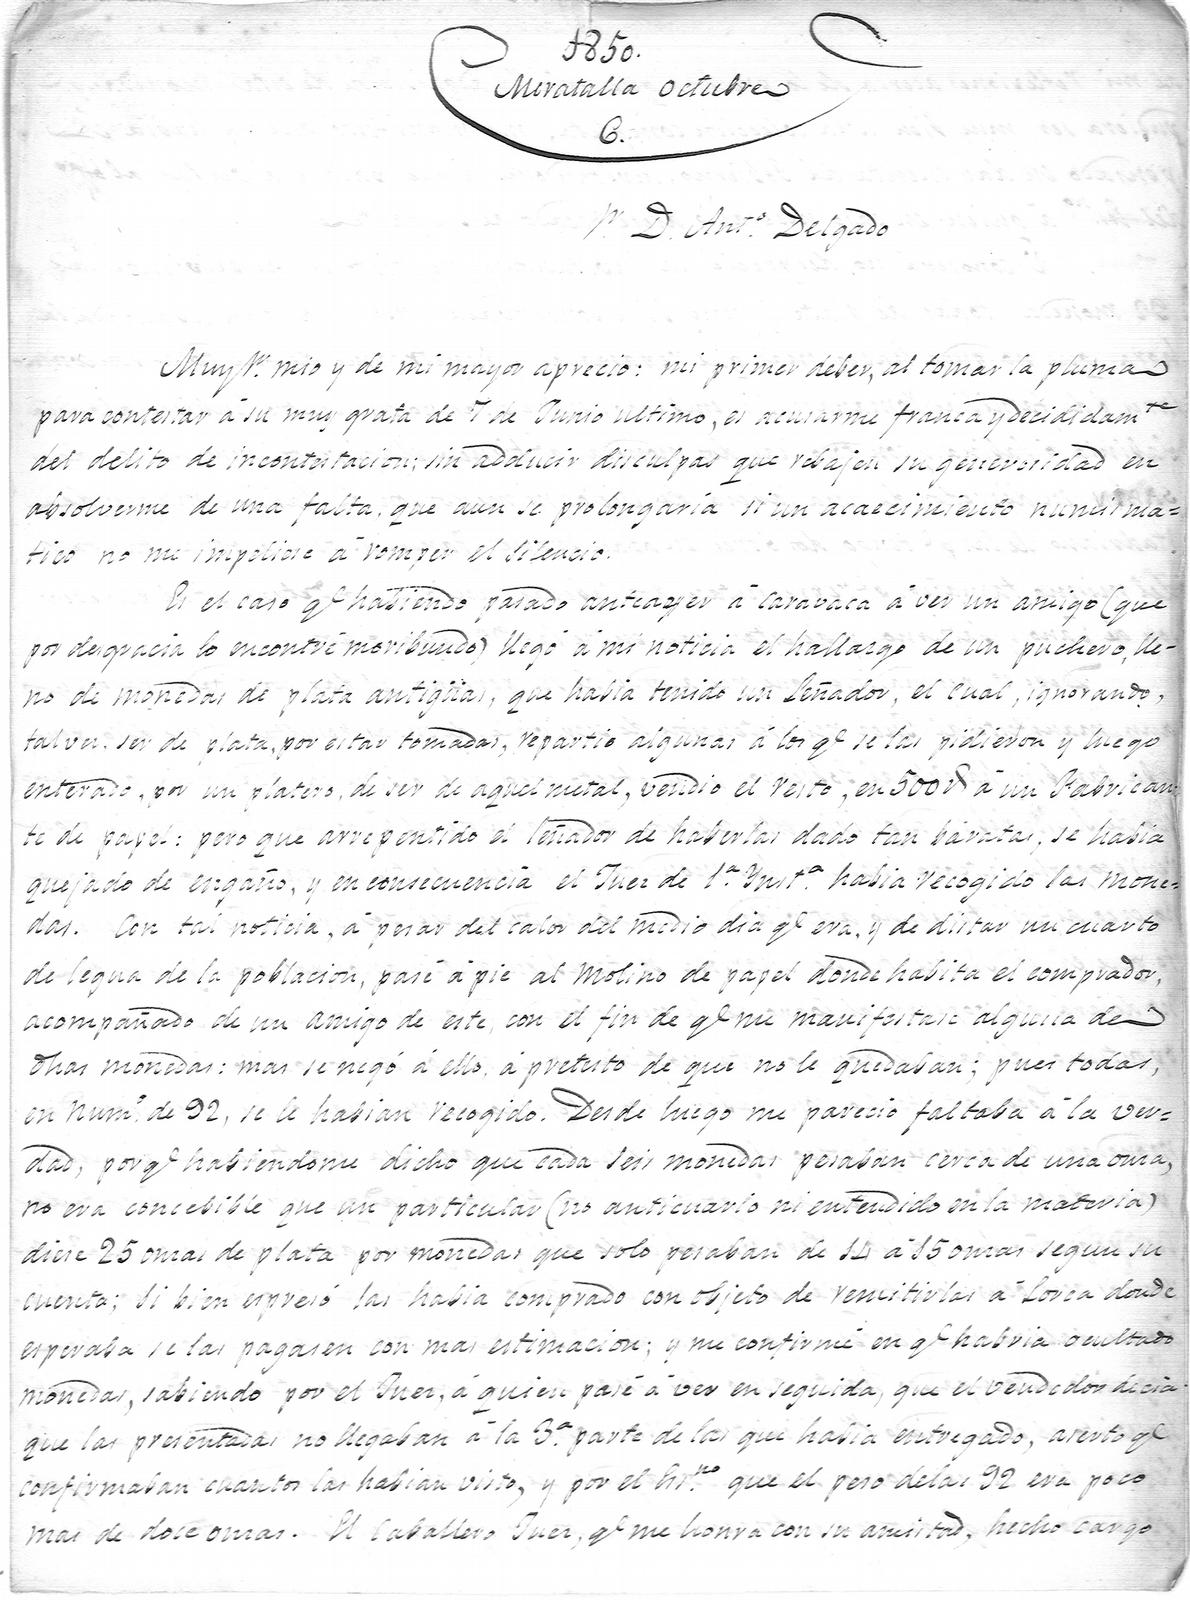 1850.
Moratalla Octubre
6.
Sr. D. Antº. Delgado
Muy Sr. mio y de mi mayor aprecio: mi primer deber, al tomar la pluma
para contestar á su muy grata de 7 de Junio ultimo, es acusarme franca y decididamte
del delito de incontestacion; sin adducir disculpas que rebajen su generosidad en
absolverme de una falta, que aun se prolongaria si un acaecimiento numismá=
tico no me impeliese á romper el silencio.
Es el caso qe habiendo pasado anteayer á Caravaca á ver un amigo (que
por desgracia lo encontré moribundo) llegó á mi noticia el hallazgo de un puchero, lle-
no de monedas de plata antigüas, que habia tenido un Leñador, el cual, ignorando,
tal vez, ser de plata, por estar tomadas, repartio algunas á los qe se las pidieron y luego
enterado, por un platero, de ser de aquel metal, vendio el resto, en 500 rs á un Fabrican
te de papel: pero que arrepentido el leñador de haberlas dado tan baratas, se habia
quejado de engaño, y en consecuencia el Juez de 1ª. Ynstª. habia recogido las mone-
das. Con tal noticia, á pesar del calor del medio dia qe era, y de distar un cuarto
de legua de la poblacion, pasé á pie al Molino de papel donde habita el comprador,
acompañado de un amigo de este, con el fin de qe me manifestase alguna de
dhas monedas: mas se negó á ello, á pretesto de que no le quedaban; pues todas,
en numº. de 92, se le habian recogido. Desde luego me parecio faltaba á la ver=
dad, porqe habiendome dicho que cada seis monedas pesaban cerca de una onza,
no era concebible que un particular (no anticuario ni entendido en la materia)
diese 25 onzas de plata por monedas que solo pesaban de 14 á 15 onzas segun su
cuenta; si bien espresó las habia comprado con objeto de remitirlas á Lorca donde
esperaba se las pagasen con mas estimacion; y me confirmé en qe habria ocultado
monedas, sabiendo por el Juez, á quien pasé á ver en seguida, que el vendedor decia
que las presentadas no llegaban á la 3ª. parte de las que habia entregado, aserto qe
confirmaban cuantos las habian visto, y por el que el peso de las 92 era poco
mas de doce onzas. El Caballero Juez, qe me honra con su amistad, hecho cargo